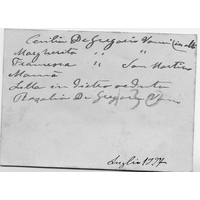 Cecilia De Gregorio
Margherita " "
Francesca " " San Martino
Mammà
Lilla in dietro seduta
Rosalia De Gregorio
Luglio 1897